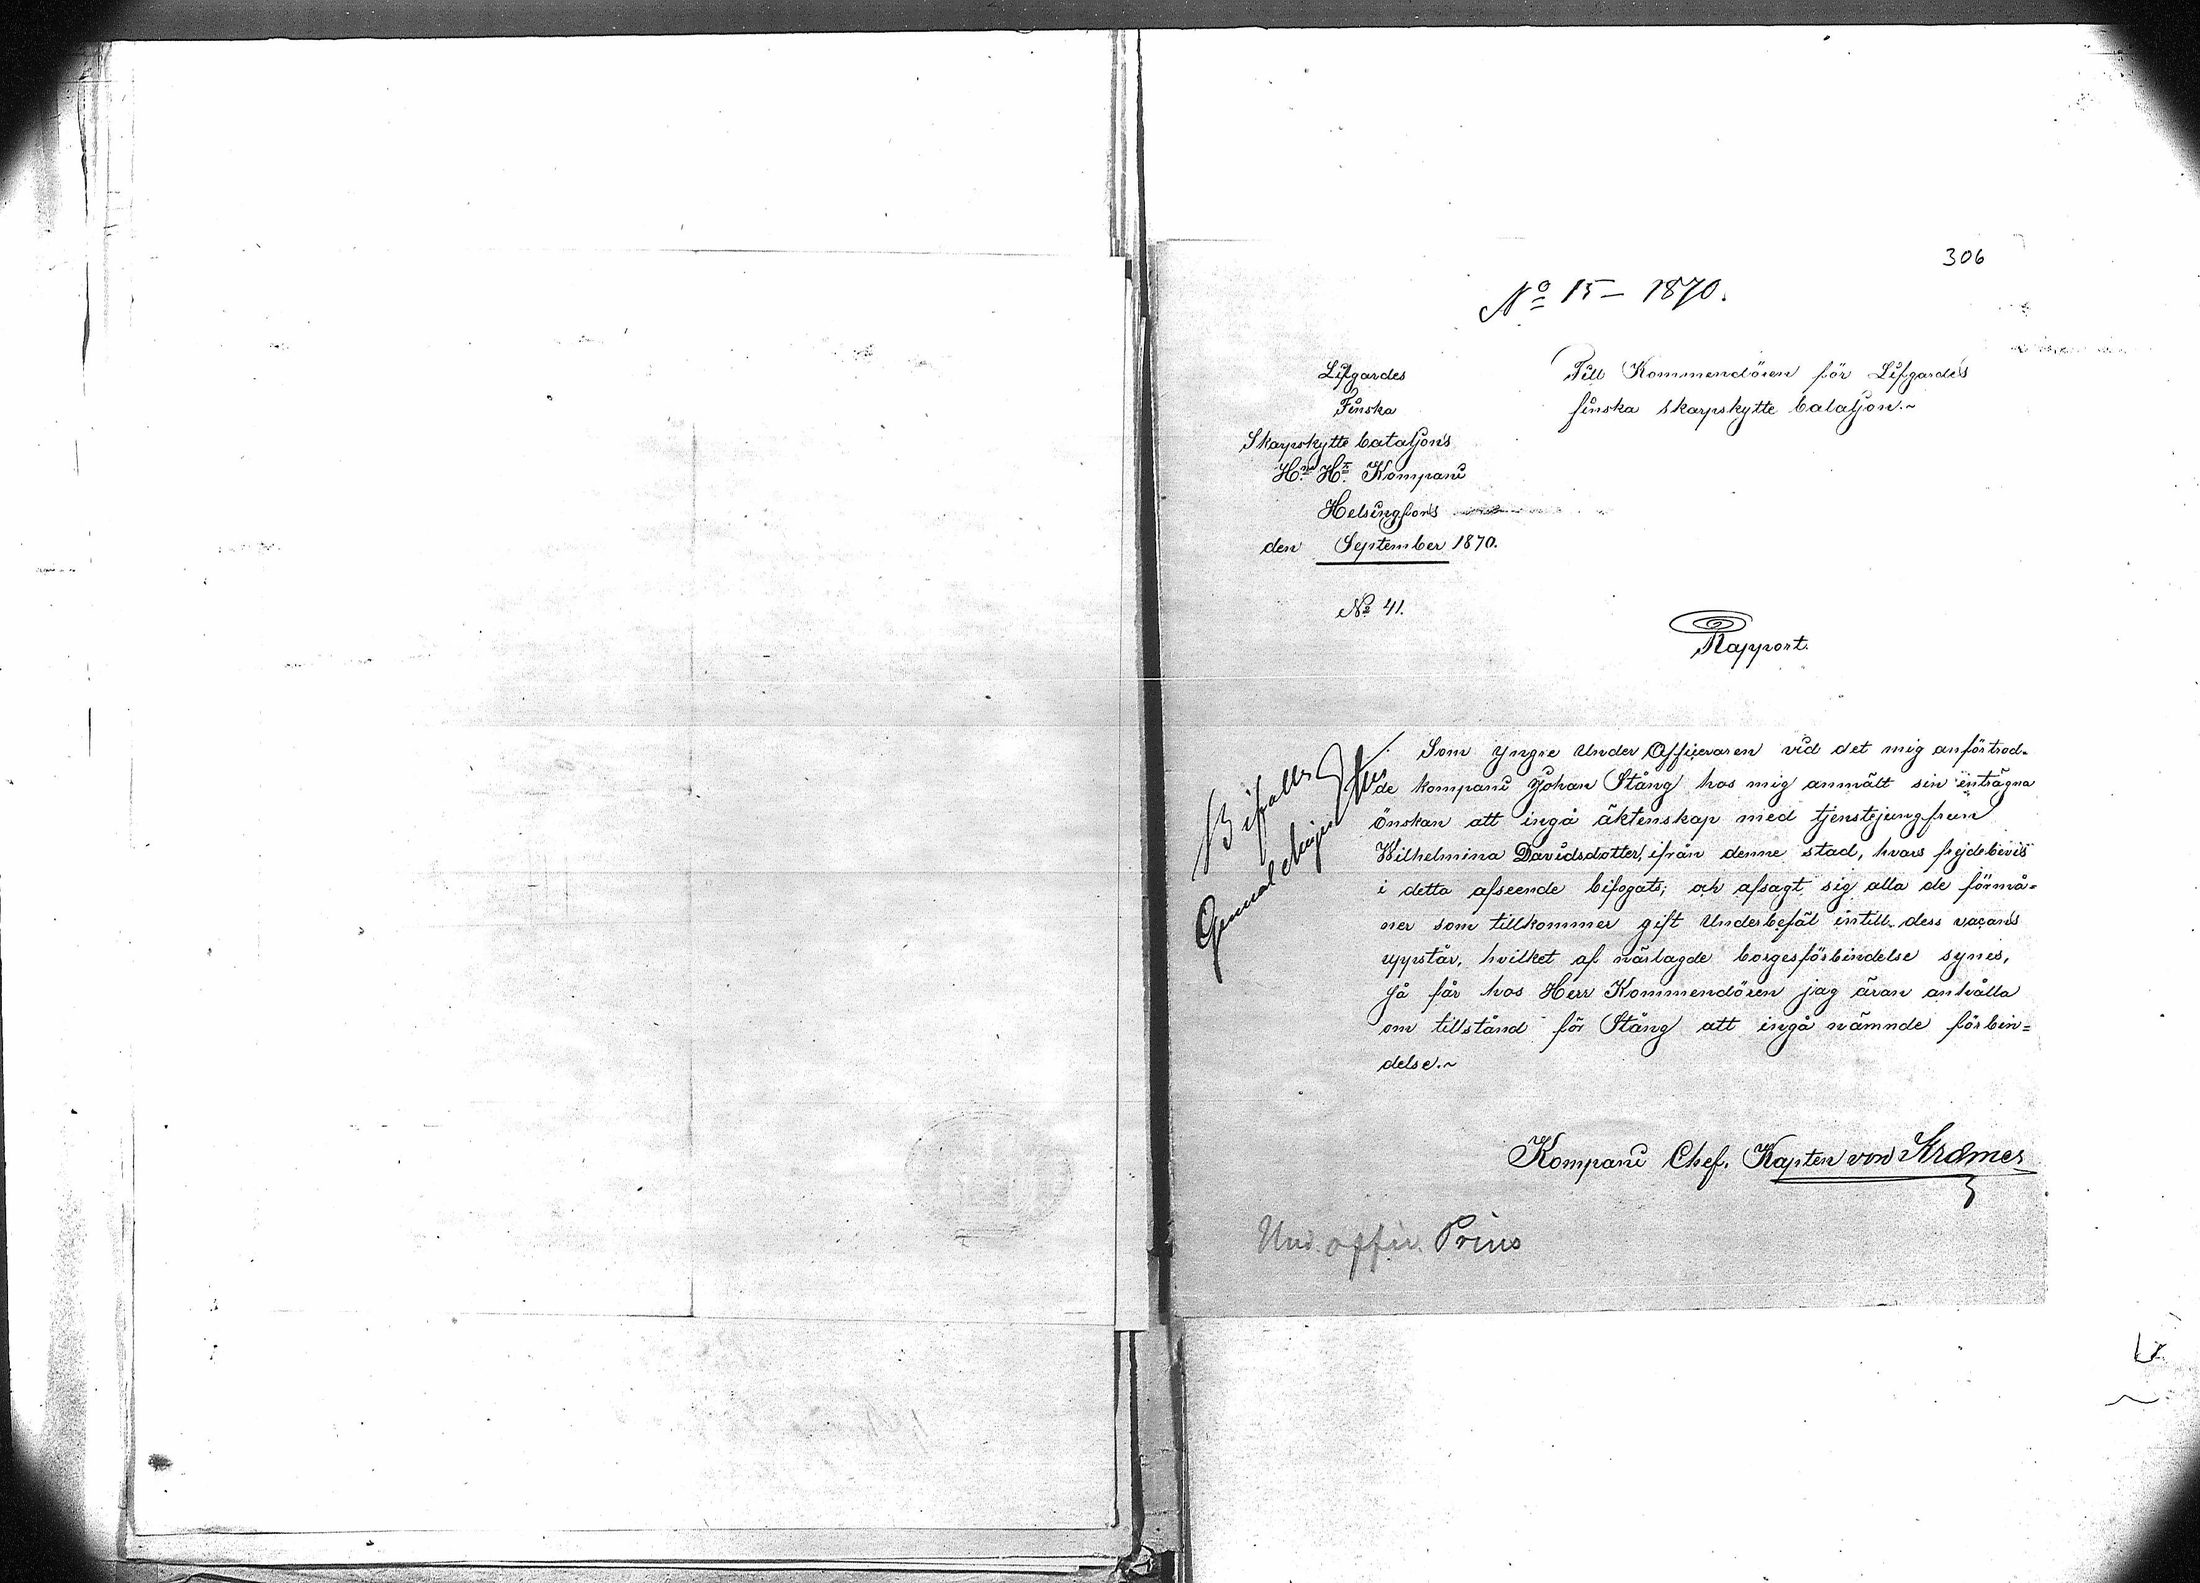 306
No 15 - 1870.
Lifgardes
Finska
Skarpskytte bataljons
Kompani
Helsingfors
den September 1870.
No 41.
Till Kommendören för Lifgardes
finska skarpskytte bataljon.~
Rapport.
Bifalles
General Major
Som yngre Under Officeraren vid det mig anförtrod-
de kompani Johan Stång hos mig anmält sin enträgna
önskan att ingå äktenskap med tjenstejungfrun
Wilhelmina Davidsdotter, ifrån denne stad, hvars frejdebevis
i detta afseende bifogats; och afsagt sig alla de förmå=
ner som tillkommer gift Underbefäl intill dess vacans
uppstår, hvilket af närlagde borgesförbindelse synes,
Så får hos Herr Kommendören jag äran anhålla
om tillstånd för Stång att ingå nämnde förbin=
delse.~
Kompani Chef. Kapten von Kræmer
Und. offic. Prins